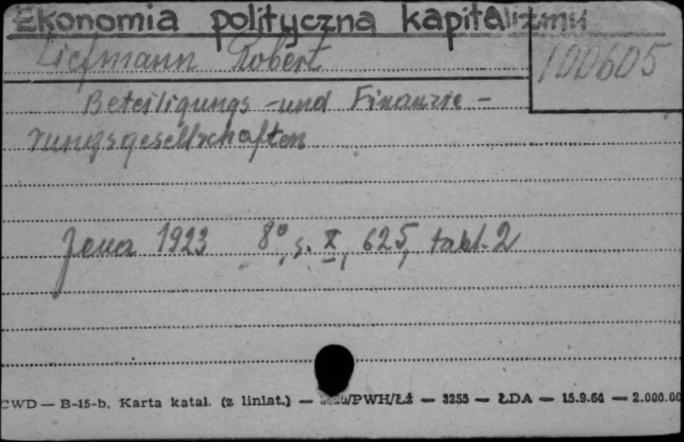 Ekonomia polityczna kapitalizmu
Liefmann Robert
100605
Beteiligungs-und Finanzie-
rungsgesellschaften
Jena 1923 8°, s. X, 625, tabl. 2
CWD — B-15-b. Karta katal. (z liniat.) — /PWH/Łż — 3255 — ŁDA — 15.9.64 — 2.000.00